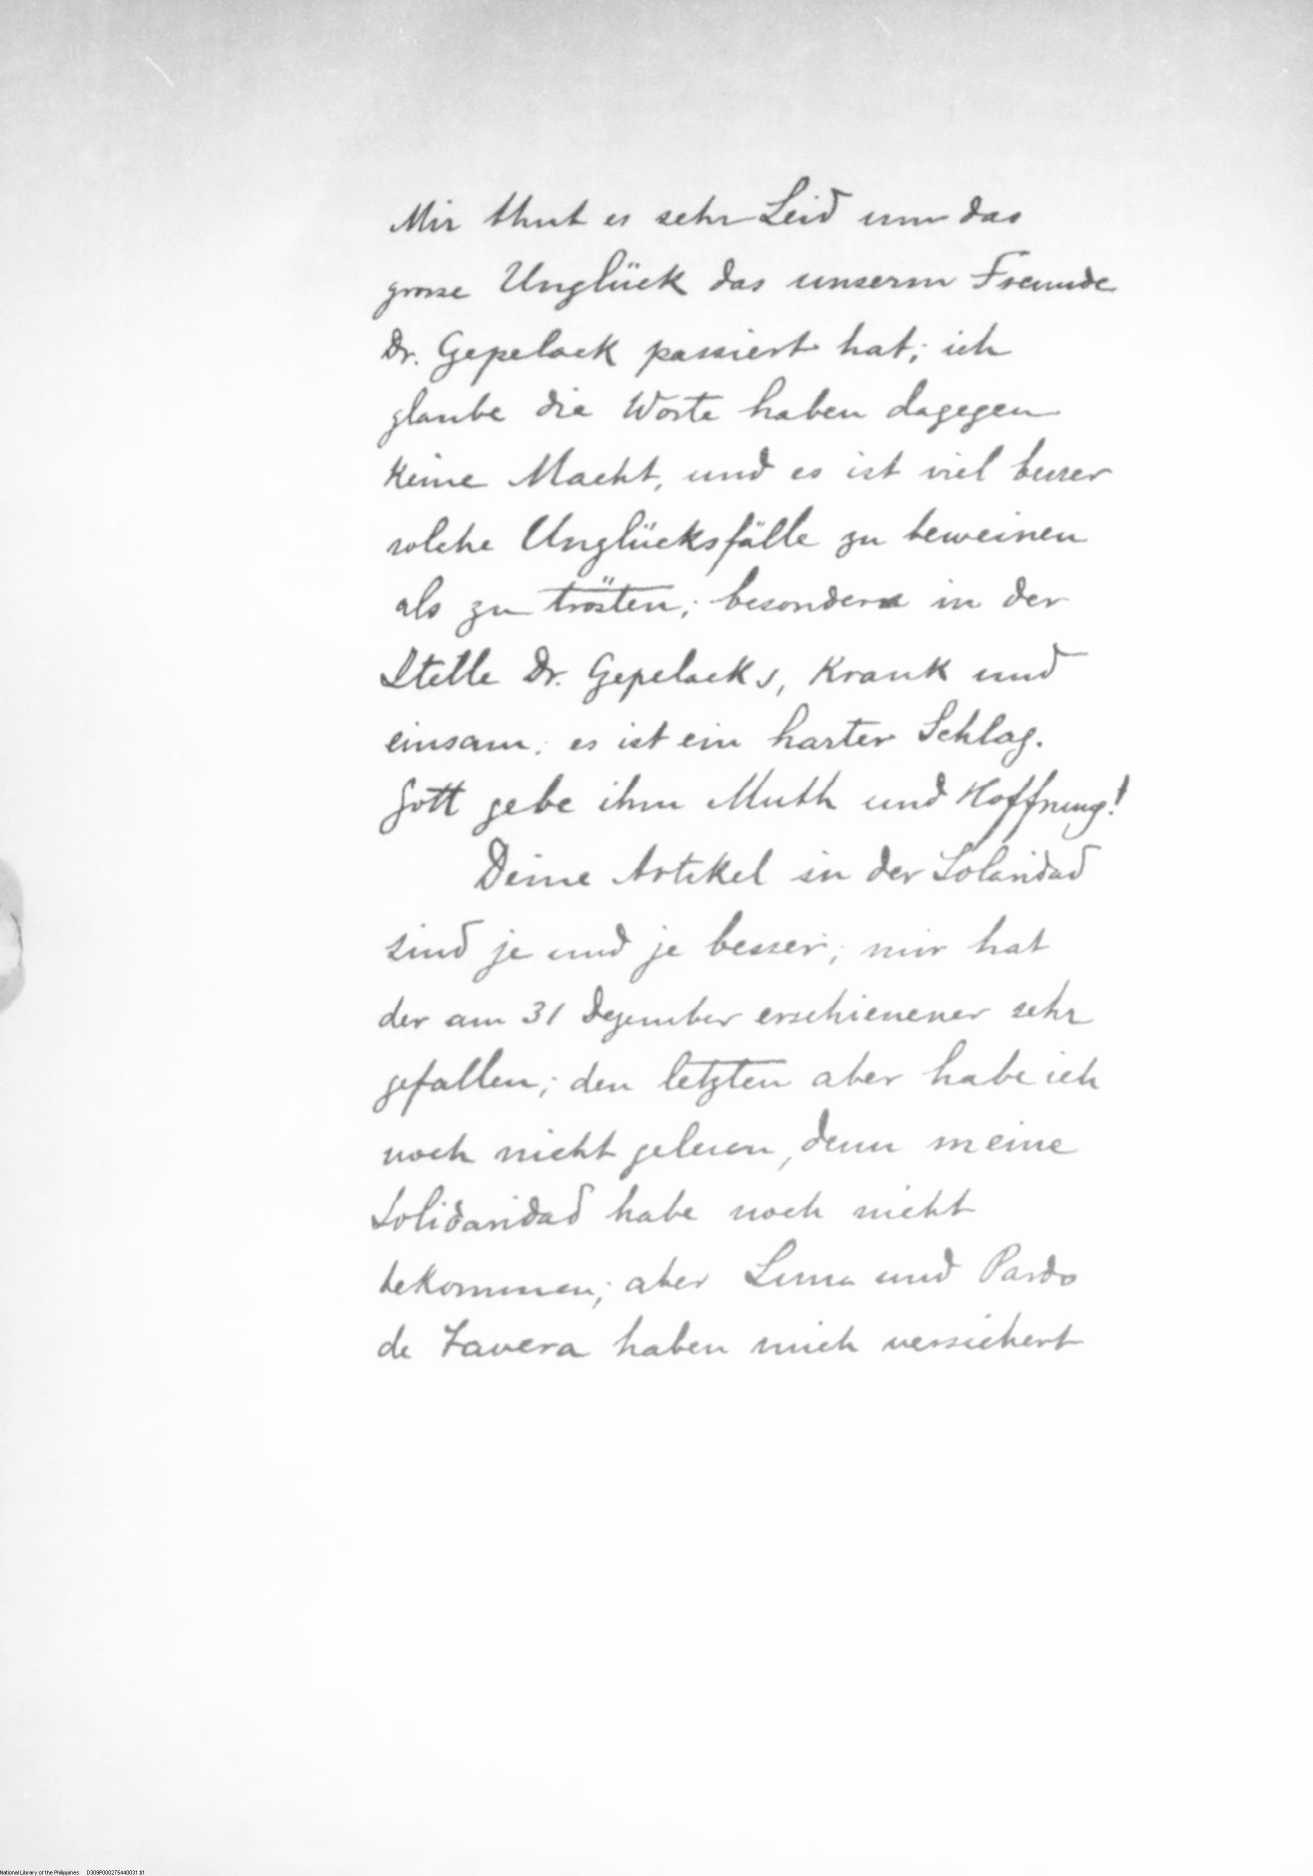 Mir thut es sehr Leid um das
grosse Unglück das unserm Freunde
Dr. Gepelack passiert hat; ich
glaube die Worte haben dagegen
keine Macht, und es ist viel besser
solche Unglücksfälle zu beweinen
als zu trösten; besonders in der
Stelle Dr. Gepelacks, krank und
einsam; es ist ein harter Schlag.
Gott gebe ihm Muth und Hoffnung!
Deine Artikel in der Solaridad
sind je und je besser; mir hat
der am 31 Dezember erschienener sehr
gefallen; den letzten aber habe ich
noch nicht gelesen, denn meine
Solidaridad habe noch nicht
bekommen; aber Luna und Pardo
de Tavera haben mich versichert
National Library of the Philippines